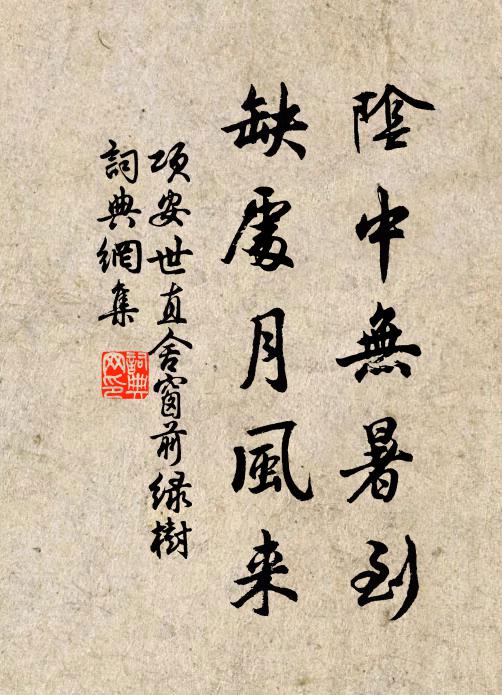 陰中無暑到
缺處月風来
項安世直舍窗前緑樹
詞典網集
詞典网印